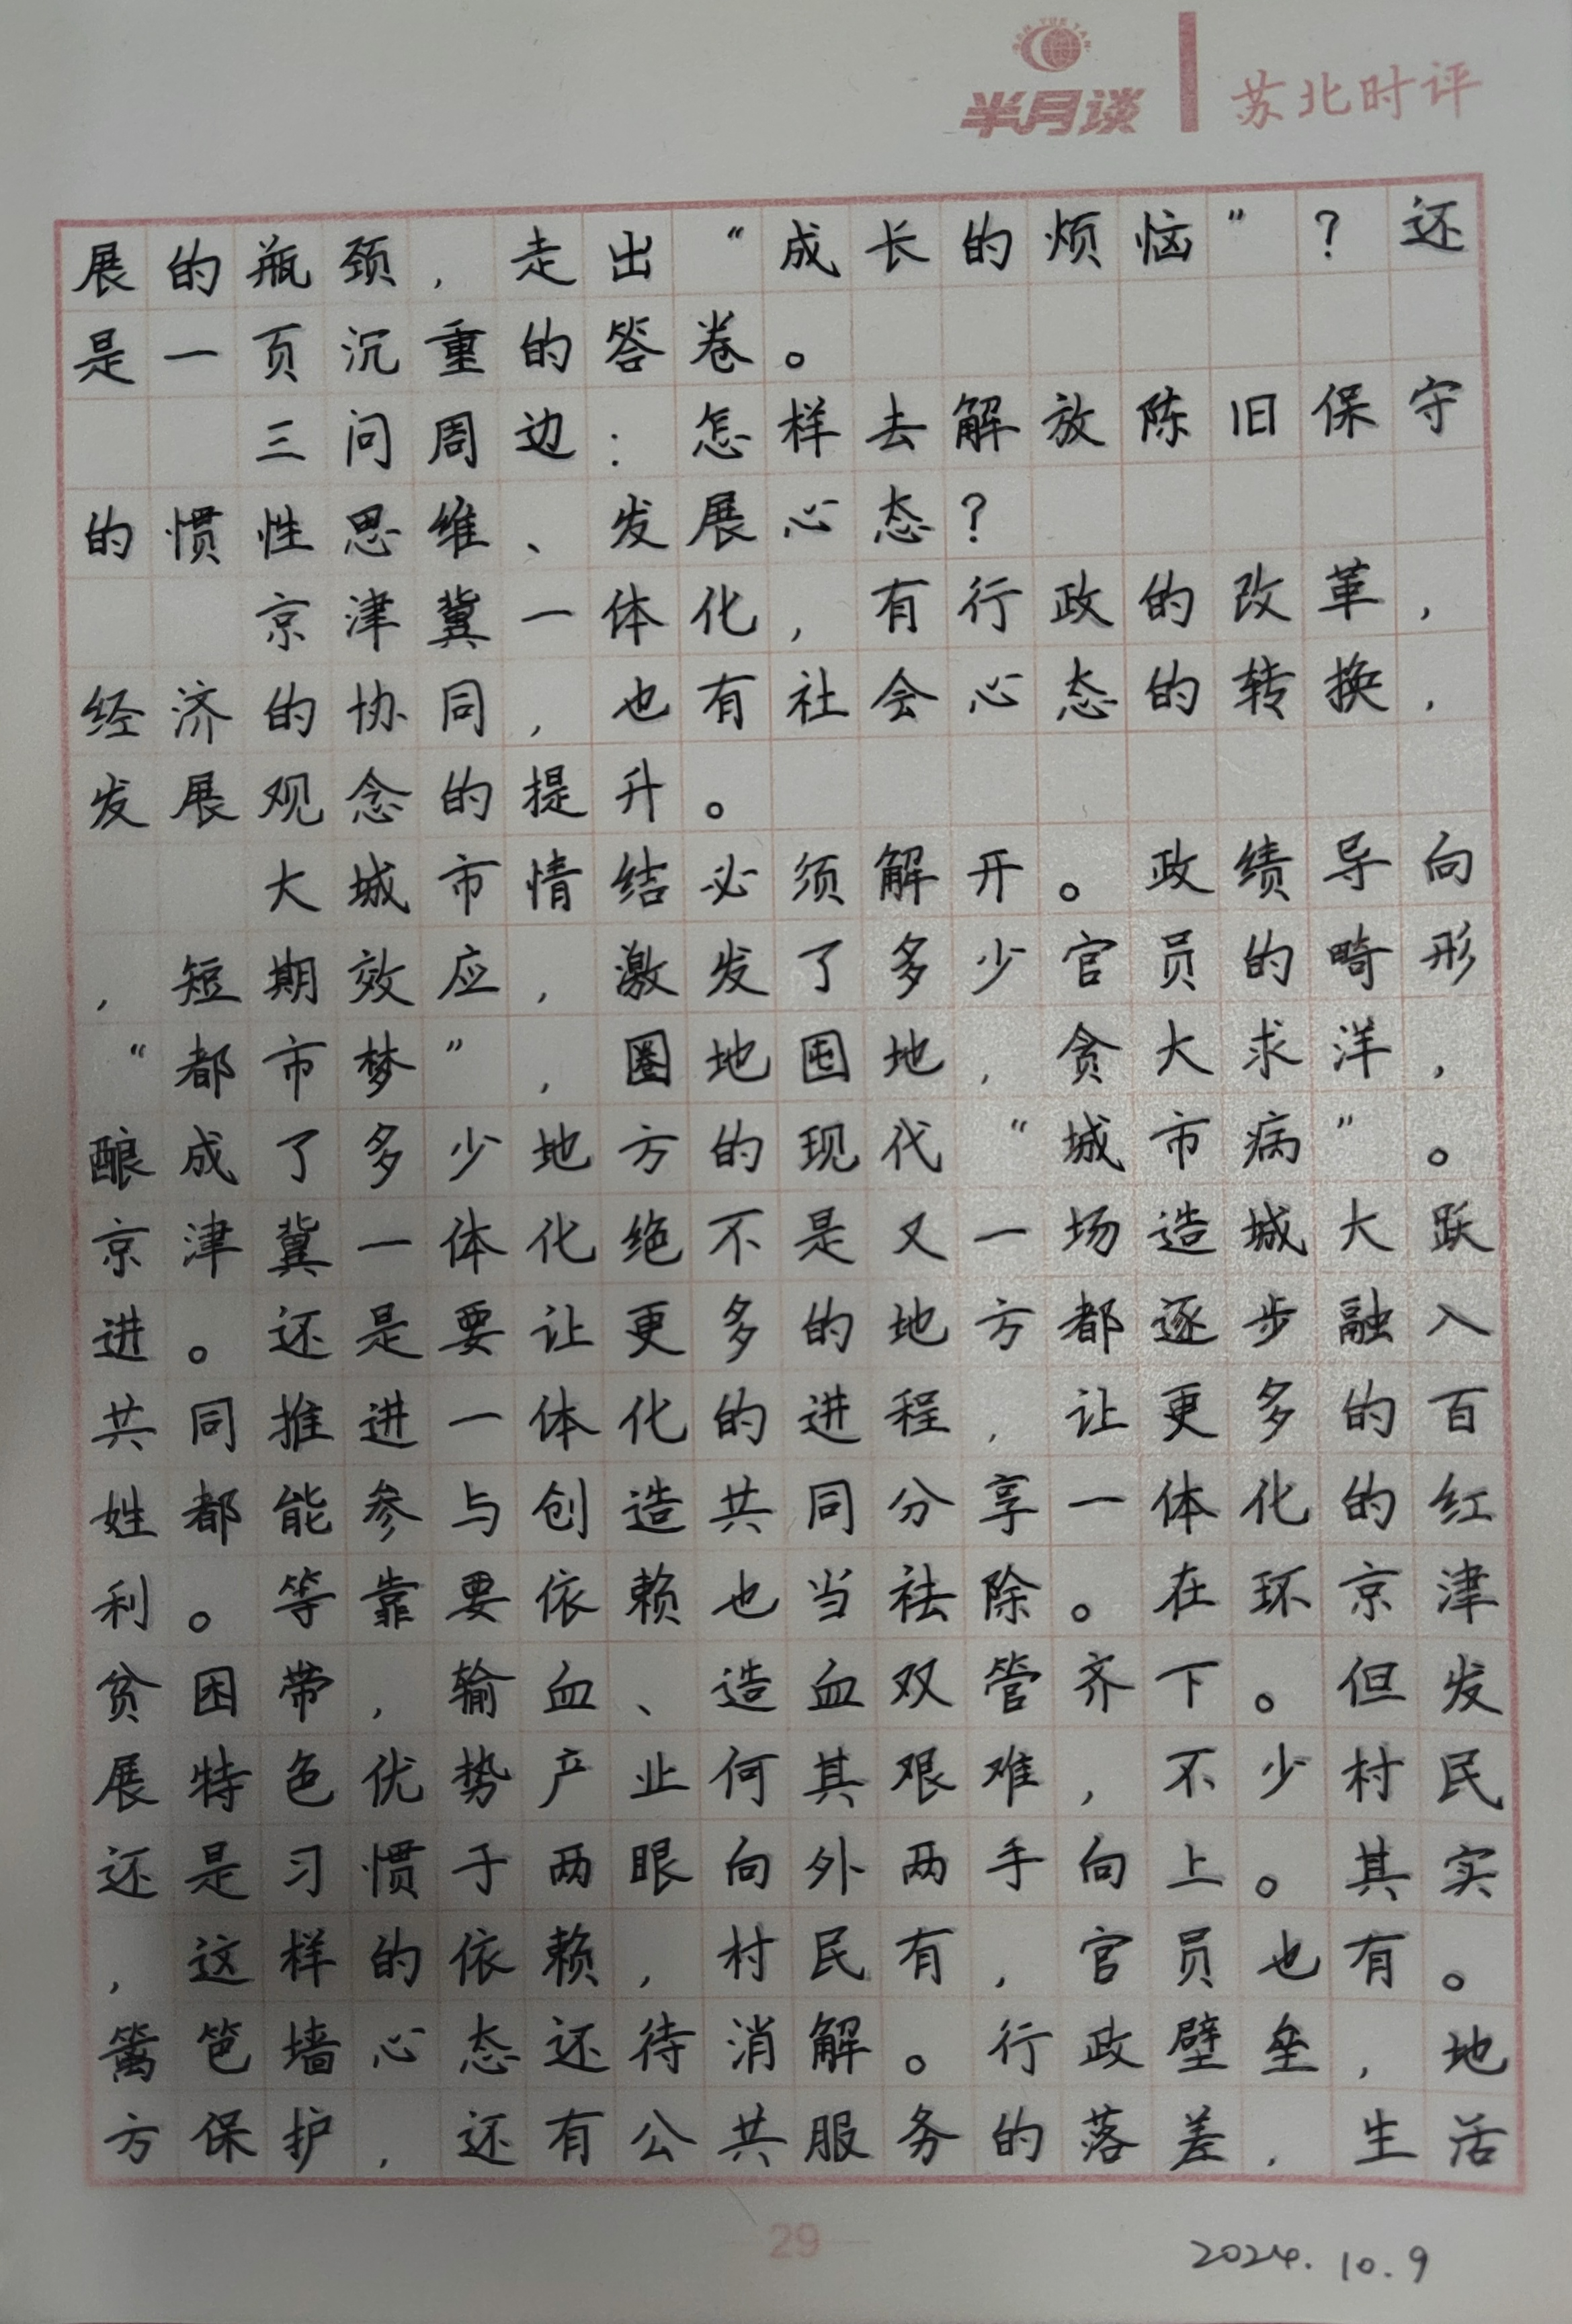 BAN YUE TAN
半月谈 苏北时评
展的瓶颈，走出“成长的烦恼”？还
是一页沉重的答卷。
三问周边：怎样去解放陈旧保守
的惯性思维、发展心态？
京津冀一体化，有行政的改革，
经济的协同，也有社会心态的转换，
发展观念的提升。
大城市情结必须解开。政绩导向
，短期效应，激发了多少官员的畸形
“都市梦”，圈地囤地，贪大求洋，
酿成了多少地方的现代“城市病”。
京津冀一体化绝不是又一场造城大跃
进。还是要让更多的地方都逐步融入
共同推进一体化的进程，让更多的百
姓都能参与创造共同分享一体化的红
利。等靠要依赖也当祛除。在环京津
贫困带，输血、造血双管齐下。但发
展特色优势产业何其艰难，不少村民
还是习惯于两眼向外两手向上。其实
，这样的依赖，村民有，官员也有。
篱笆墙心态还待消解。行政壁垒，地
方保护，还有公共服务的落差，生活
29
2024.10.9